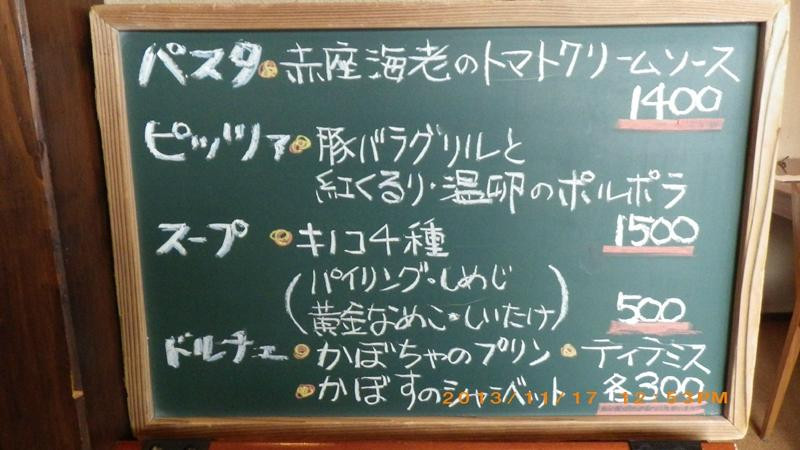 パスタ・赤座海老のトマトクリームソース
1400
ピッツァ・豚バラグリルと
紅くるり・温卵のポルポラ
1500
スープ・キノコ4種
(パイリング・しめじ
黄金なめこ・しいたけ)
500
ドルチェ・かぼちゃのプリン・ティラミス
・かぼすのシャーベット 各300
2013/11/17 12:53PM